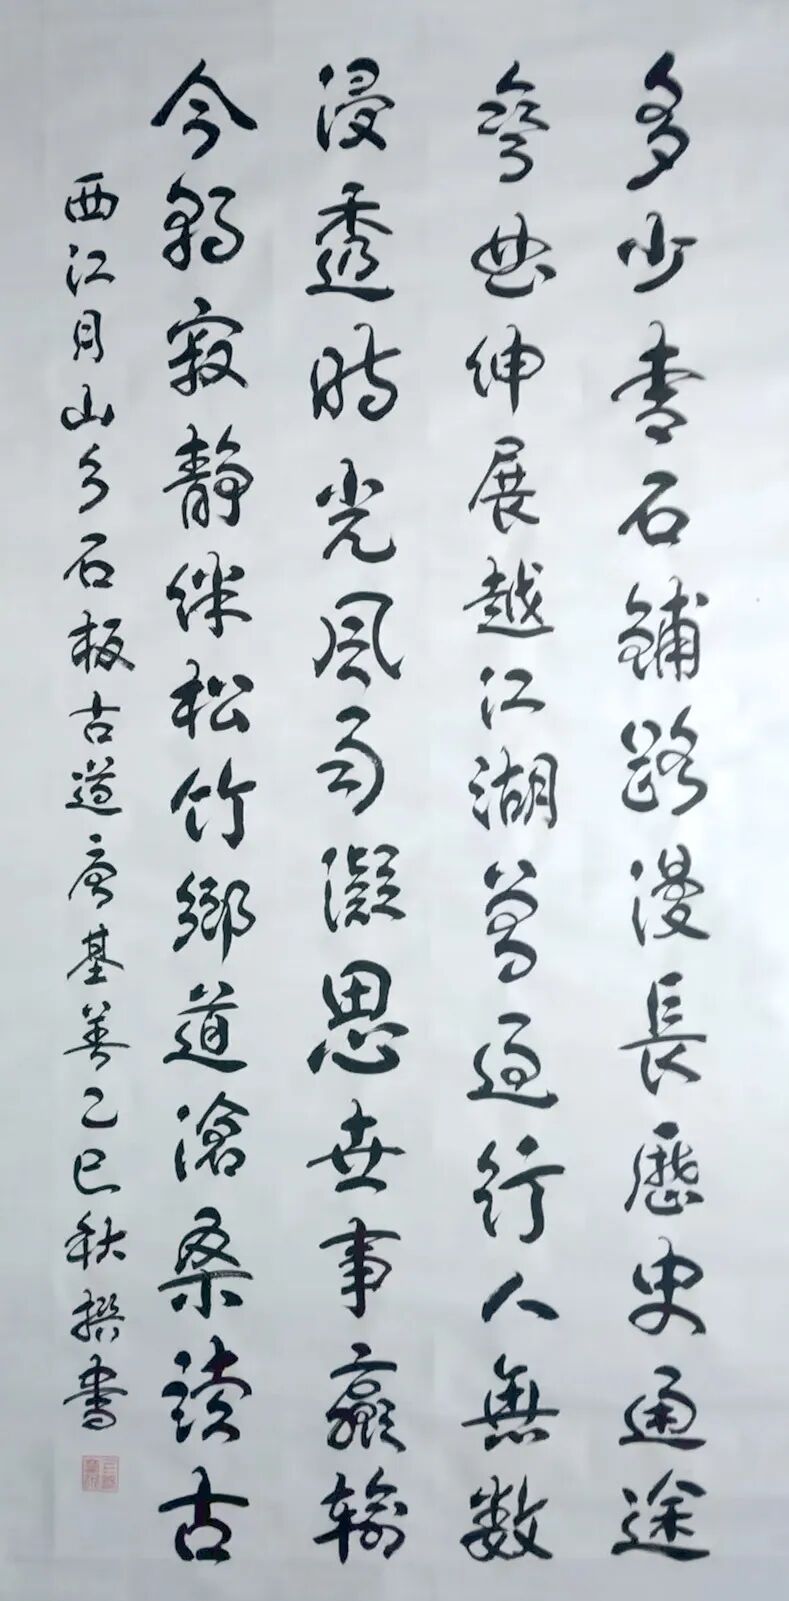 多少青石鋪路漫長歷史通途
彎曲伸展越江湖萬過行人無數
浸透時光風雨凝思世事贏輸
今朝寂靜伴松竹鄉道滄桑讀古
西江月山乡石板古道唐基善乙巳秋撰書